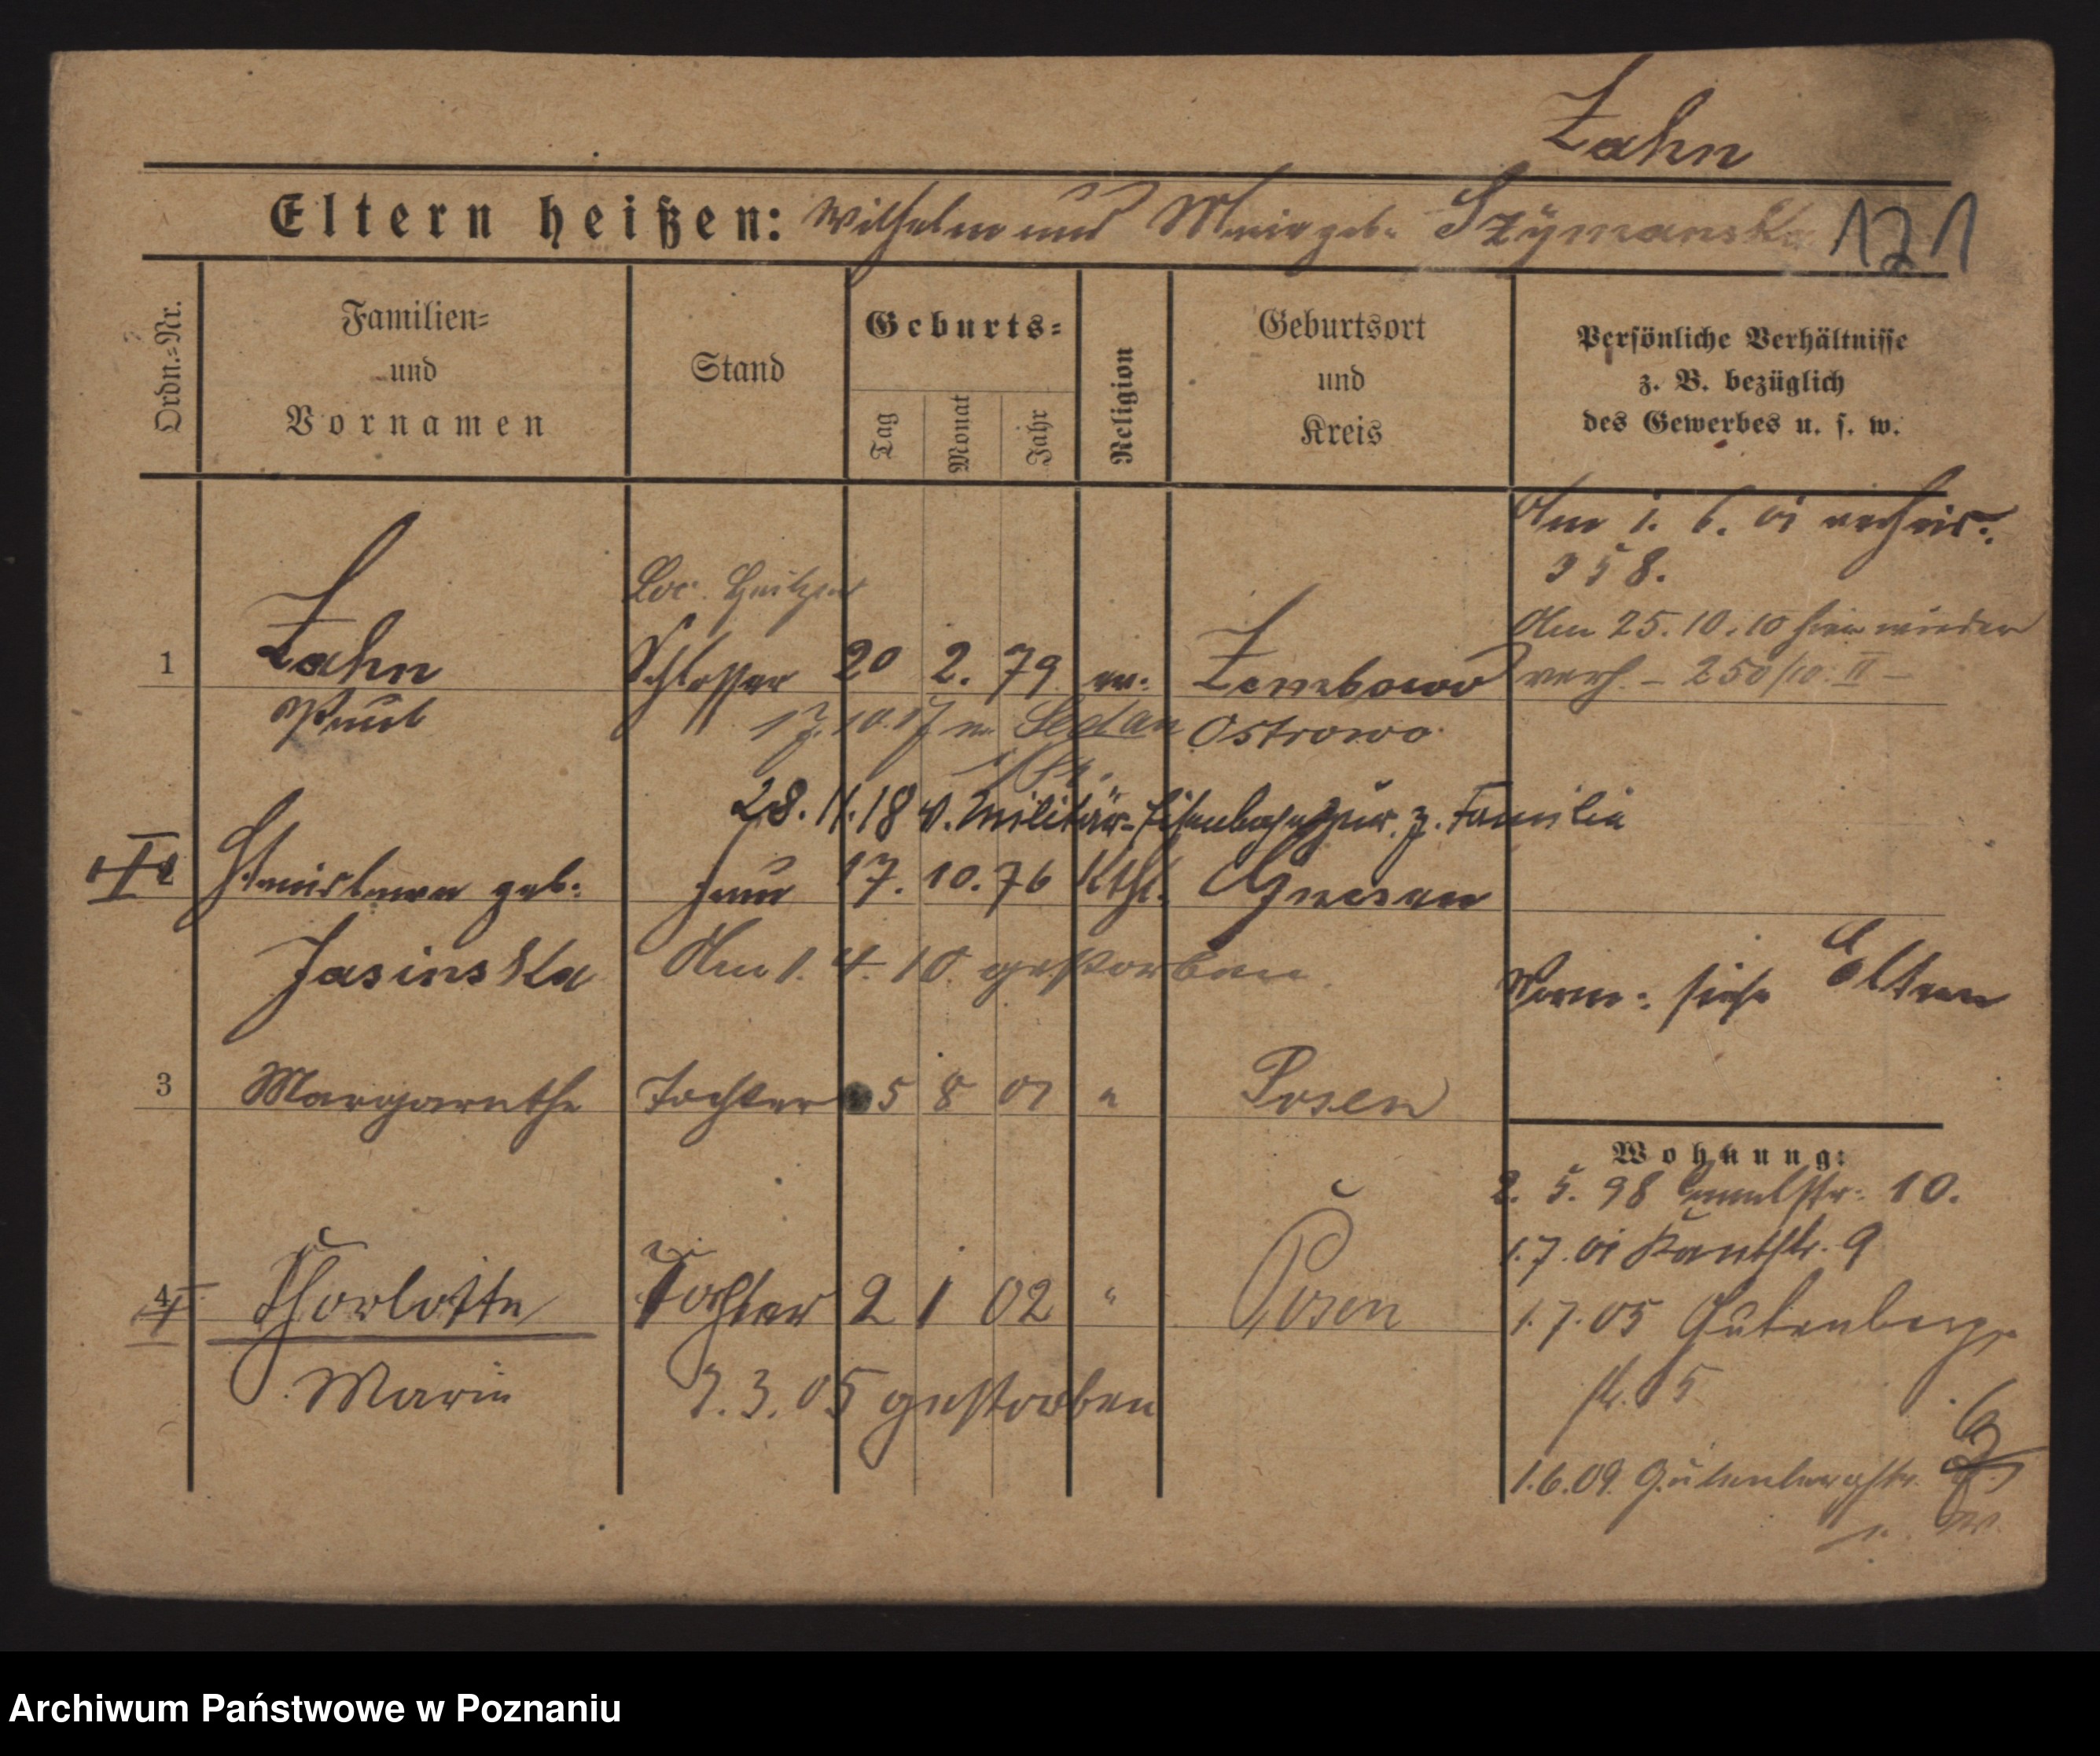 Zahn
Eltern heißen: Wilhelm und Marie geb. Szymanska 121
Ordn.=Nr.
Familien=
und
Vornamen
Stand
Geburts=
Tag
Monat
Jahr
Religion
Geburtsort
und
Kreis
Persönliche Verhältnisse
z. B. bezüglich
des Gewerbes u. s. w.
Am 1. 6. 01 verheir.
358.
Loc. Heitzer
Am 25. 10. 10 hier wieder
1 Zahn Schlosser 20 2. 79 ev. Zembowo verh. – 250/10. II –
Paul 17. 10. 17 n. Sedan Ostrowo
28. 11. 18 v. Militär-Eisenbahn zur. z. Familie
2 Stanislawa geb. Frau 17. 10. 76 Kth. Gnesen
Jasinska Am 1. 4. 10. gestorben
Vorm. siehe Eltern
3 Margarethe Tochter 5 8 01 " Posen
Wohnung:
2. 5. 98 10.
1. 7. 01 Kantstr. 9
4 Charlotte Tochter 2 1 02 " Posen
1. 7. 05 Gutenberg-
str. 5
Marie 7. 3. 05 gestorben
1. 6. 09. Gutenbergstr.
Archiwum Państwowe w Poznaniu